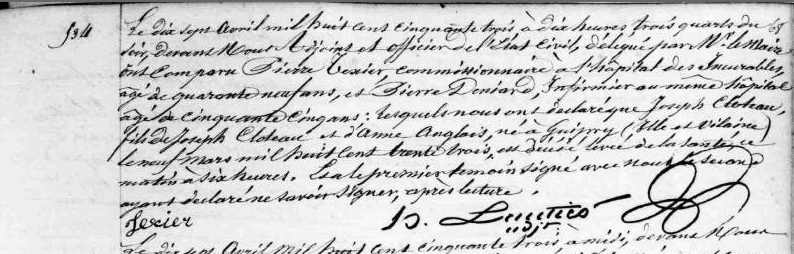 534
Le dix sept avril mil huit cent cinquante trois à dix heures trois quarts du
soir, devant Nous Adjoint et officier de l'Etat Civil, délégué par Mr le Maire
ont comparu Pierre Texier, commissionnaire à l'hôpital des Incurables,
agé de quarante neuf ans, et Pierre Doniard, Infirmier au même hôpital
agé de cinquante cinq ans : lesquels nous ont déclaré que Joseph Cloteau,
fils de Joseph Cloteau et d'Anne Anglais, né à Guipry (Ille et Vilaine)
le neuf mars mil huit cent trente trois, est décédé de la santé, ce
matin à six heures. Et a le premier témoin signé avec Nous le second
ayant déclaré ne savoir signer, après lecture.
Texier
adjt
Le dix sept Avril mil huit cent cinquante trois à midi, devant Nous